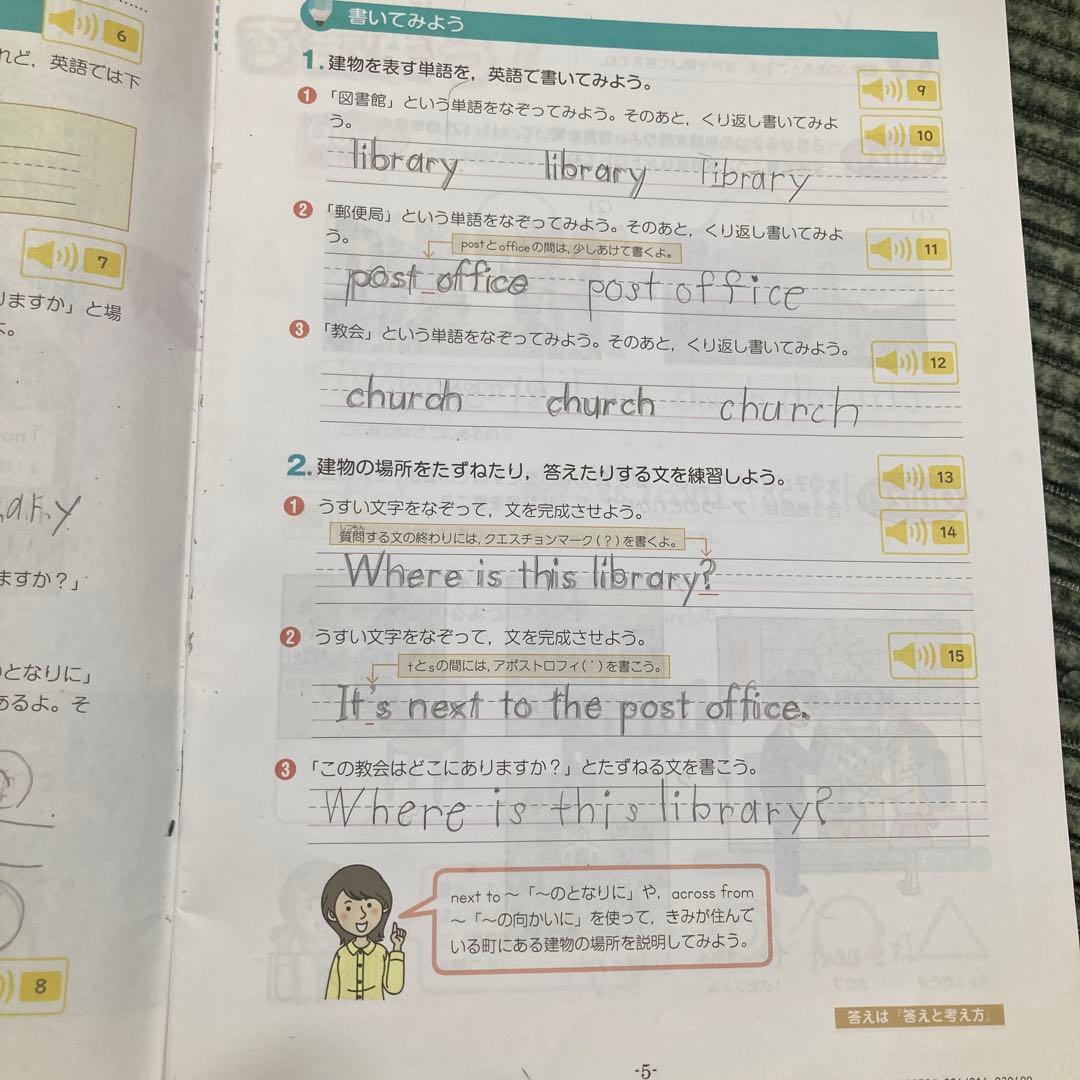 6
れど，英語では下
7
りますか」と場
よ。
ary
ますか？」
のとなりに」
あるよ。そ
8
書いてみよう
1. 建物を表す単語を，英語で書いてみよう。
9
1 「図書館」という単語をなぞってみよう。そのあと，くり返し書いてみよ
う。
10
library library library
2 「郵便局」という単語をなぞってみよう。そのあと，くり返し書いてみよ
う。
11
postとofficeの間は，少しあけて書くよ。
post office post office
3 「教会」という単語をなぞってみよう。そのあと，くり返し書いてみよう。
12
church church church
2. 建物の場所をたずねたり，答えたりする文を練習しよう。
13
1 うすい文字をなぞって，文を完成させよう。
14
しつもん
質問する文の終わりには，クエスチョンマーク（？）を書くよ。
Where is this library?
2 うすい文字をなぞって，文を完成させよう。
15
tとsの間には，アポストロフィ（'）を書こう。
It's next to the post office.
3 「この教会はどこにありますか？」とたずねる文を書こう。
Where is this library?
next to ～「～のとなりに」や，across from
～「～の向かいに」を使って，きみが住んで
いる町にある建物の場所を説明してみよう。
答えは『答えと考え方』
-5-